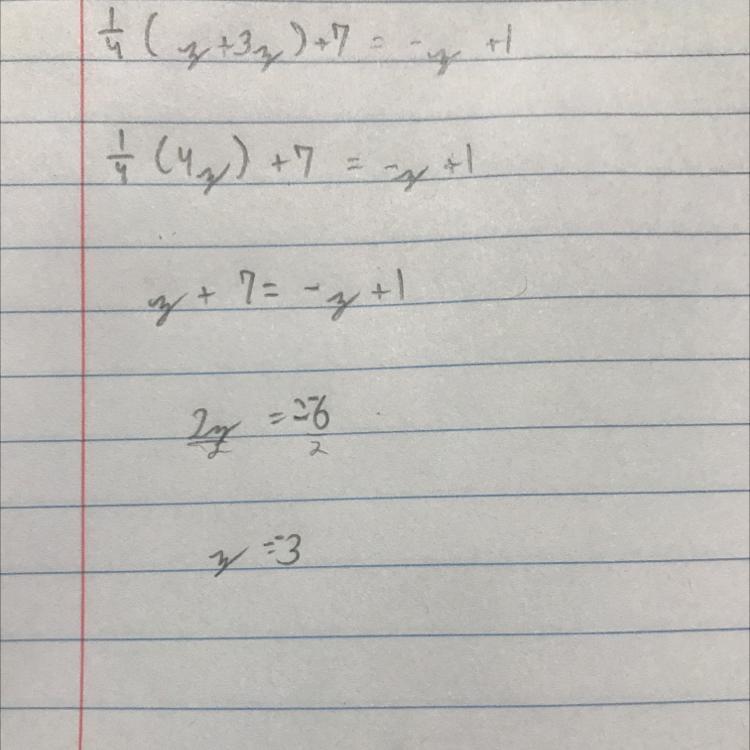 1/4 (y+3y)+7 = -y +1
1/4 (4y) +7 = -y +1
y + 7 = -y +1
2y/2 = -6/2
y = -3